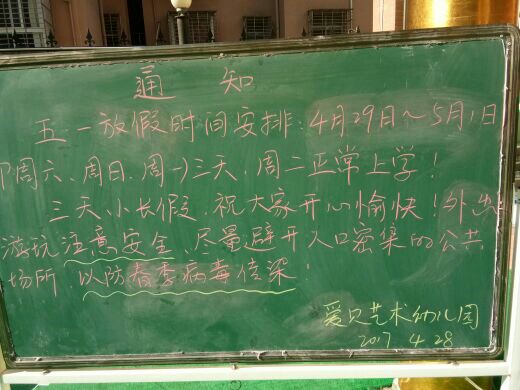 通 知
五一放假时间安排:4月29日~5月1日
(周六、周日、周一)三天,周二正常上学!
三天小长假,祝大家开心愉快!外出
游玩注意安全、尽量避开人口密集的公共
场所 以防春季病毒传染!
爱贝艺术幼儿园
2017 4 28